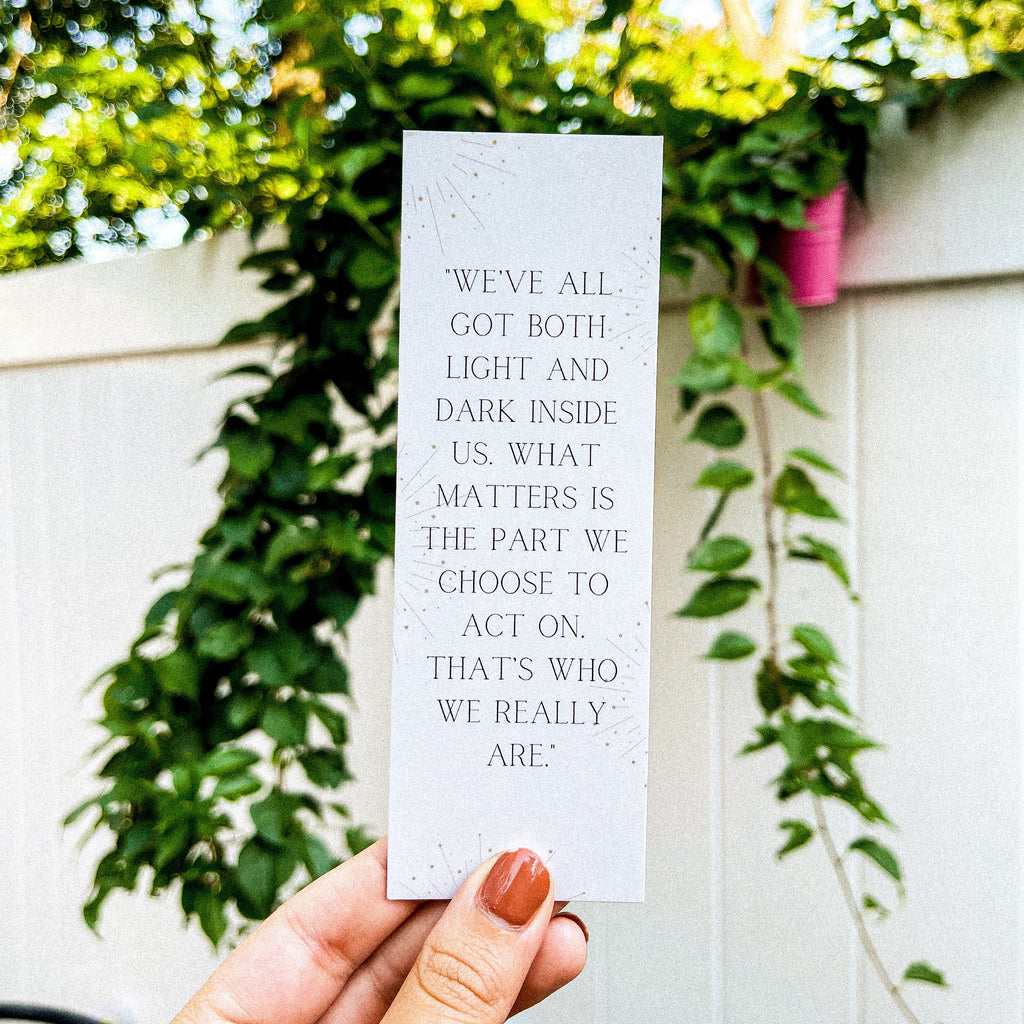 "WE'VE ALL
GOT BOTH
LIGHT AND
DARK INSIDE
US. WHAT
MATTERS IS
THE PART WE
CHOOSE TO
ACT ON.
THAT'S WHO
WE REALLY
ARE."